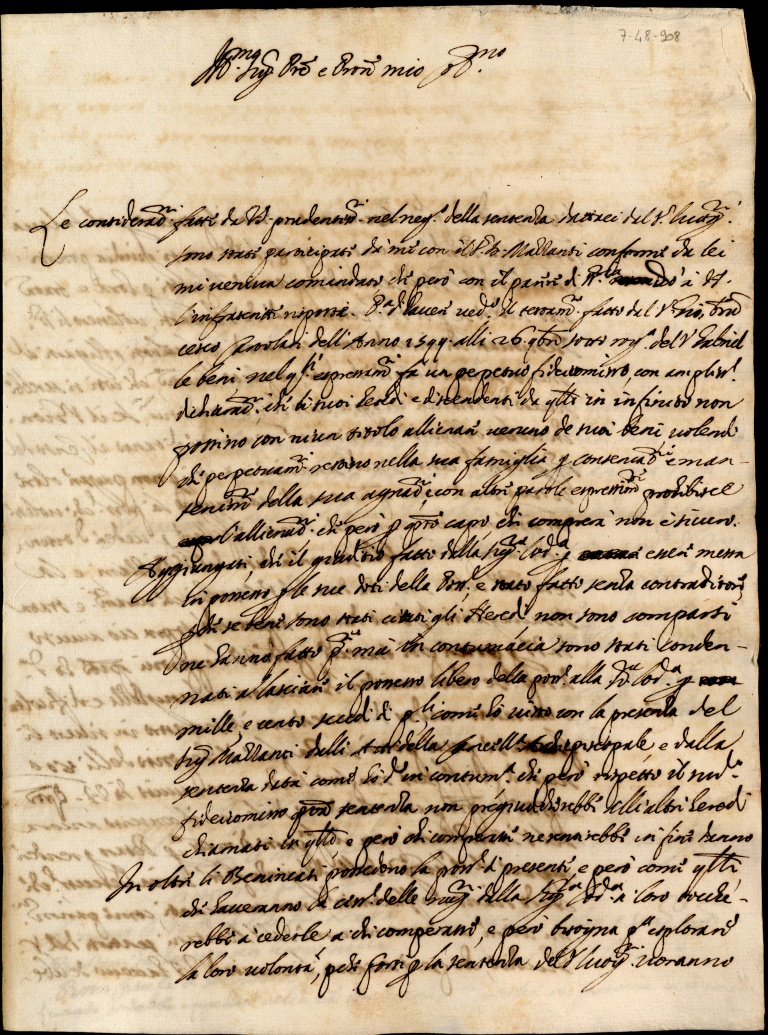 7-48-908
Ill.mo Sig.r Pro.e e Pron.e mio Oss.mo
Le considerao.ni fatte da VS. prudentiss.e nel neg.o della sentenza dataci dal S.r
sono state participate da me con il S.r Mallanti conforme da lei
mi veniva comandato che però con il parere di à VS.
l'infrascritte risposte. P.a d'havere ved.o il testam.o fatto dal S.r Gio. Fran
cesco Paolari dell'Anno 1599 alli 26 9bre sotto rog.o del S.r Gabriel
le beni nel q.le espressam.e fa un perpetuo fideicomisso, con ampliss.e
dichiarao.ni, che li suoi heredi e discendenti da q.lli in infinito non
possino con niun titolo allienare veruno de suoi beni volendo
che perpetuam.e restino nella sua famiglia p conservao.ne e man-
tenim.to della sua agnao.ne, e con altre parole espressam.e prohibisce
l'allienao.ne che però p q.sto capo, chi comprerà non è sicuro.
Aggiungasi, che il giuditio fatto dalla Sig.ra Lod.a p essere messa
in possesso p le sue doti della Poss.e, è stato fatto senza contraditori
p che se bene sono stati citati gli Heredi, non sono comparsi
ne hanno fatto p.a mà in contumacia sono stati conden-
nati a lasciare il possesso libero della poss.e alla S.ra Lod.a p
mille, e cento scudi di p.li come hò visto con la presenza del
Sig.r Mallanti dalli atti della Cancell.a Episcopale e dalla
sentenza data come hò d.o in contum.a che però rispetto il sud.o
fideicomisso sentenza non pregiudicherebbe all'altri heredi
chiamati in q.llo e però chi comperasse ne sentirebbe in fine danno
In oltre li Benincasi possedono la poss.e di presente, e però come q.lli
che haveranno la cess.e delle ragioni della Sig.ra Lod.a a loro tocche-
rebbe à cederle, a chi comperasse, e però bisogna p.a esplorare
la loro volontà, perche forse p la sentenza del S.r voranno